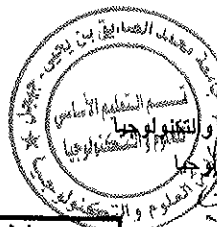 جامعة محمد الصديق بن يحيى - جيجل
قسم التعليم الأساسي
للعلوم والتكنولوجيا
والتكنولوجيا
العلوم و التكنولوجيا